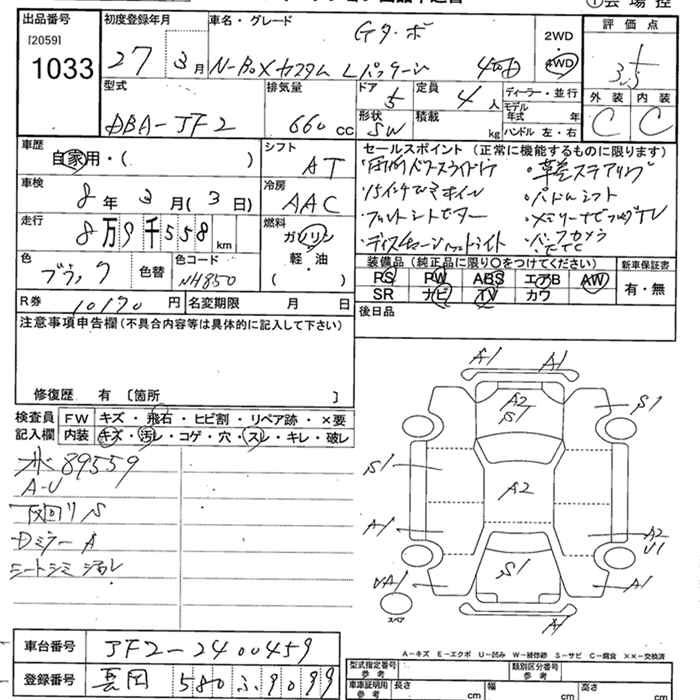 出品番号
[2059]
1033
初度登録年月
27 3月
車名・グレード
Gターボ
N-BOXカスタム Lパッケージ 4WD
2WD
4WD
評価点
3.5
外装 内装
C C
型式
DBA-JF2
排気量
660 CC
ドア
5
定員
4人
ディーラー・並行
モデル年式 年
形状
SW
積載
kg
ハンドル 左・右
車歴
自家用・( )
シフト
AT
車検
8年3月(3日)
冷房
AAC
走行
8万9千558km
燃料
ガソリン
軽・油
( )
色
ブラック
色替
色コード
NH850
セールスポイント(正常に機能するものに限ります)
・革巻ステアリング
・15インチアルミホイール
・パドルシフト
・フルセグTV
・バックカメラ
・ETC
・ディスチャージヘッドライト
装備品(純正品に限り○をつけてください)
PS PW ABS エアB AW
SR ナビ TV カワ
新車保証書
有・無
後日品
R券 10170円
名変期限 月 日
注意事項申告欄(不具合内容等は具体的に記入して下さい)
修復歴 有 [箇所 ]
検査員記入欄
FW キズ・飛石・ヒビ割・リペア跡・×要
内装 キズ・汚レ・コゲ・穴・スレ・キレ・破レ
89559
A-U
下回りS
Dミラー A
シートシミ 汚レ
A1 A1
A2
S1
S1
S1
A2
A1
A2
U1
S1
UA1
A1
A1
スペア
A-キズ E-エクボ U-凹み W-補修跡 S-サビ C-腐食 ××-交換済
車台番号
JF2-2400459
登録番号
580 ふ 9099
型式指定番号
参考
類別区分番号
参考
車庫証明用
参考
長さ cm
幅 cm
高さ cm